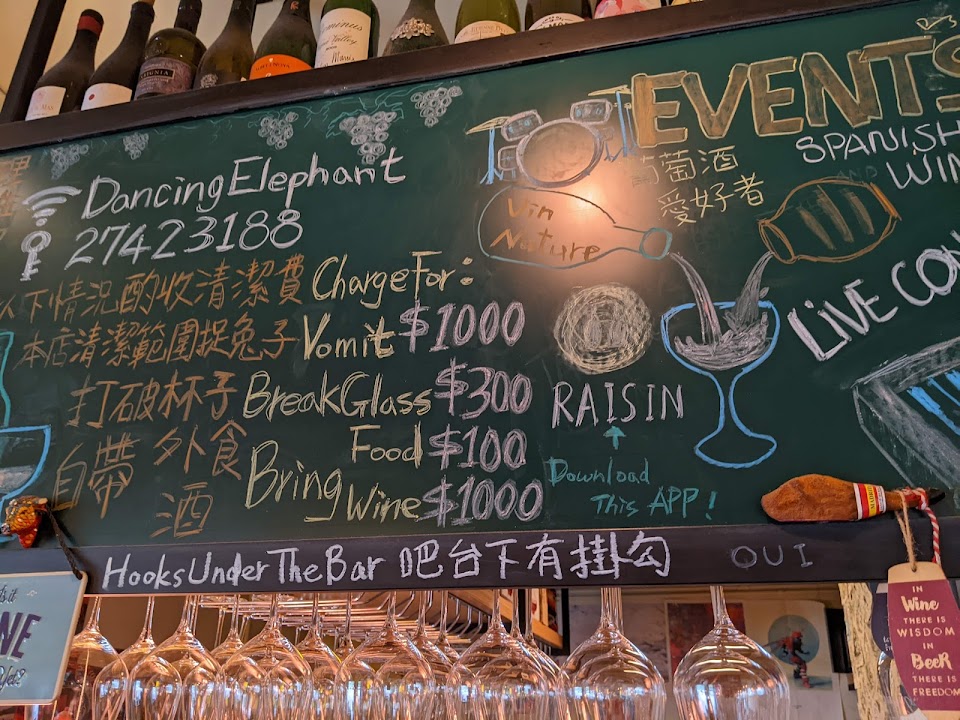 DancingElephant
27423188
以下情況酌收清潔費 Charge For:
本店清潔範圍捉兔子 Vomit $1000
打破杯子 Break Glass $300
自帶 外食 酒
Bring Food $100
Wine $1000
EVENTS
SPANISH
AND WIN
葡萄酒
愛好者
Vin
Nature
LIVE CON
RAISIN
Download
This APP!
Hooks Under The Bar 吧台下有掛勾 OUI
IN
Wine
THERE IS
WISDOM
IN
BEER
THERE IS
FREEDOM